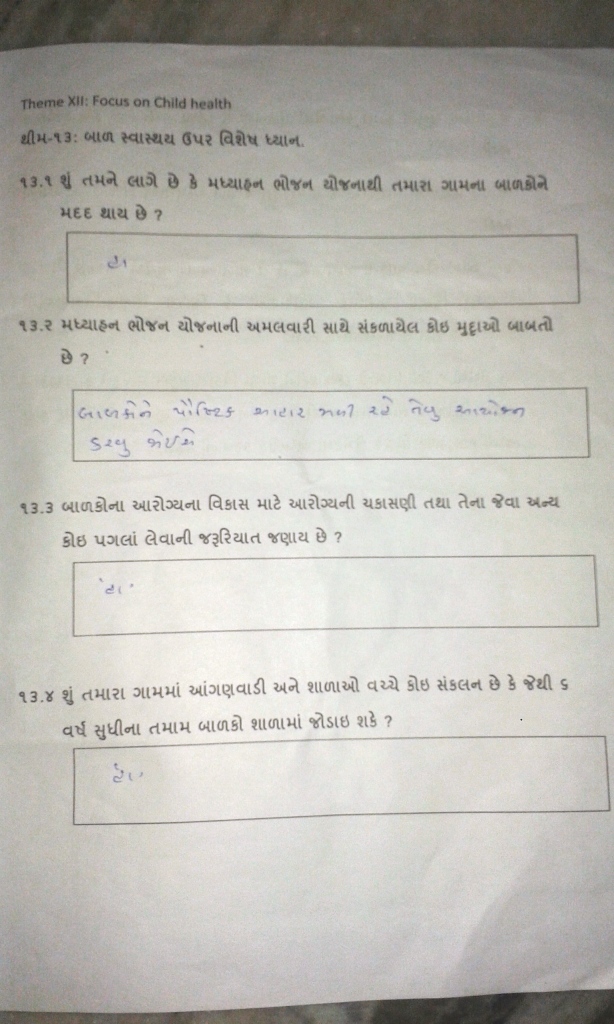 Theme XII: Focus on Child health
થીમ-૧૩: બાળ સ્વાસ્થય ઉપર વિશેષ ધ્યાન.
૧૩.૧ શું તમને લાગે છે કે મધ્યાહન ભોજન યોજનાથી તમારા ગામના બાળકોને
મદદ થાય છે ?
હા
૧૩.૨ મધ્યાહન ભોજન યોજનાની અમલવારી સાથે સંકળાયેલ કોઇ મુદ્દાઓ બાબતો
છે ?
બાળકોને પૌષ્ટિક આહાર મળી રહે તેવુ આયોજન
કરવુ જોઈએ
૧૩.૩ બાળકોના આરોગ્યના વિકાસ માટે આરોગ્યની ચકાસણી તથા તેના જેવા અન્ય
કોઇ પગલાં લેવાની જરૂરિયાત જણાય છે ?
હા
૧૩.૪ શું તમારા ગામમાં આંગણવાડી અને શાળાઓ વચ્ચે કોઇ સંકલન છે કે જેથી ૬
વર્ષ સુધીના તમામ બાળકો શાળામાં જોડાઇ શકે ?
હા